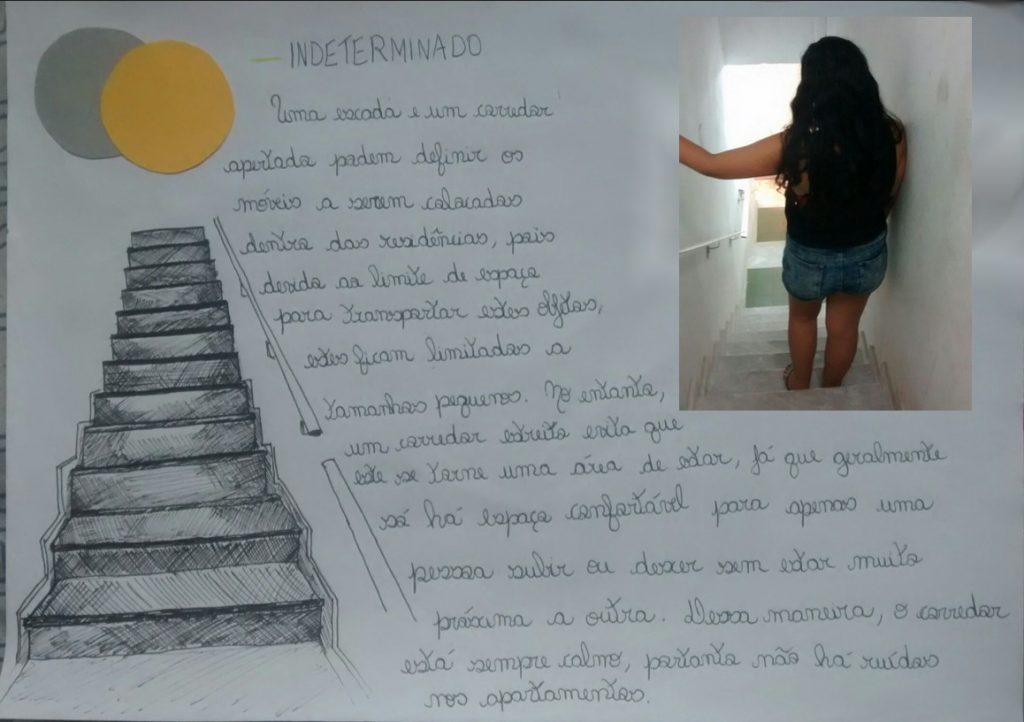 INDETERMINADO
Uma escada e um corredor
apertado podem definir os
móveis a serem colocados
dentro das residências, pois
devido ao limite de espaço
para transportar estes objetos,
estes ficam limitados a
tamanhos pequenos. No entanto,
um corredor estreito evita que
este se torne uma área de estar, já que geralmente
só há espaço confortável para apenas uma
pessoa subir ou descer sem estar muito
próxima a outra. Dessa maneira, o corredor
está sempre calmo, portanto não há ruídos
nos apartamentos.